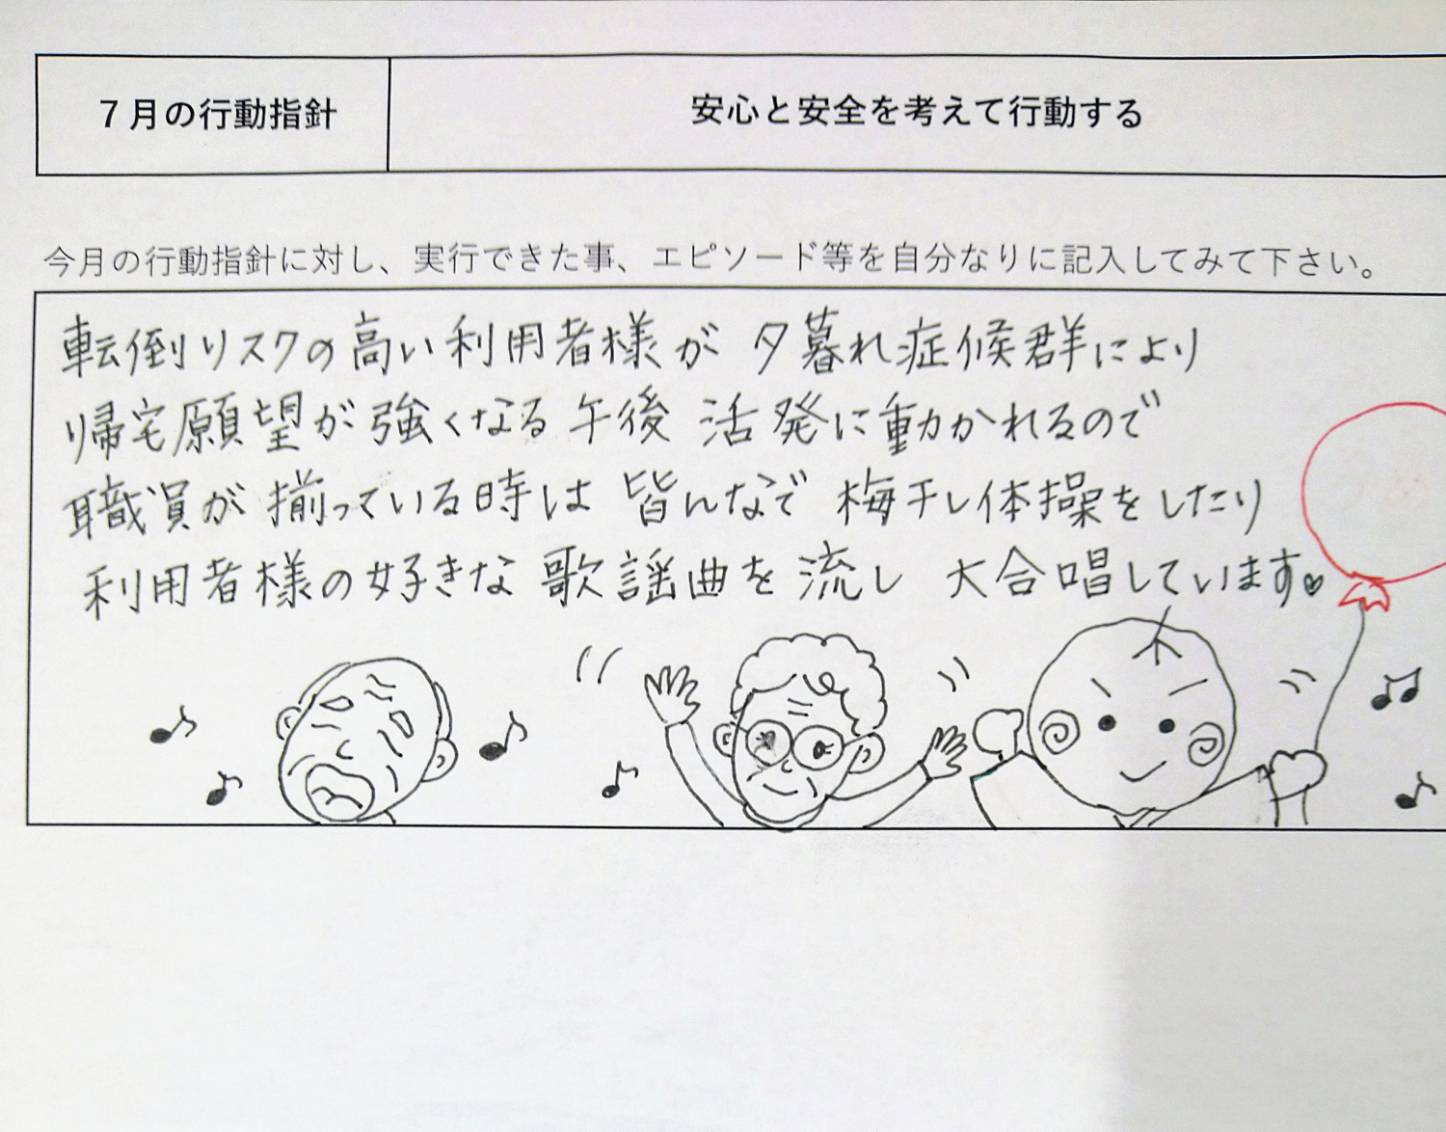 7月の行動指針
安心と安全を考えて行動する
今月の行動指針に対し、実行できた事、エピソード等を自分なりに記入してみて下さい。
転倒リスクの高い利用者様が 夕暮れ症候群により
帰宅願望が強くなる午後 活発に動かれるので
職員が揃っている時は 皆んなで 梅干し体操をしたり
利用者様の好きな歌謡曲を流し 大合唱しています♥